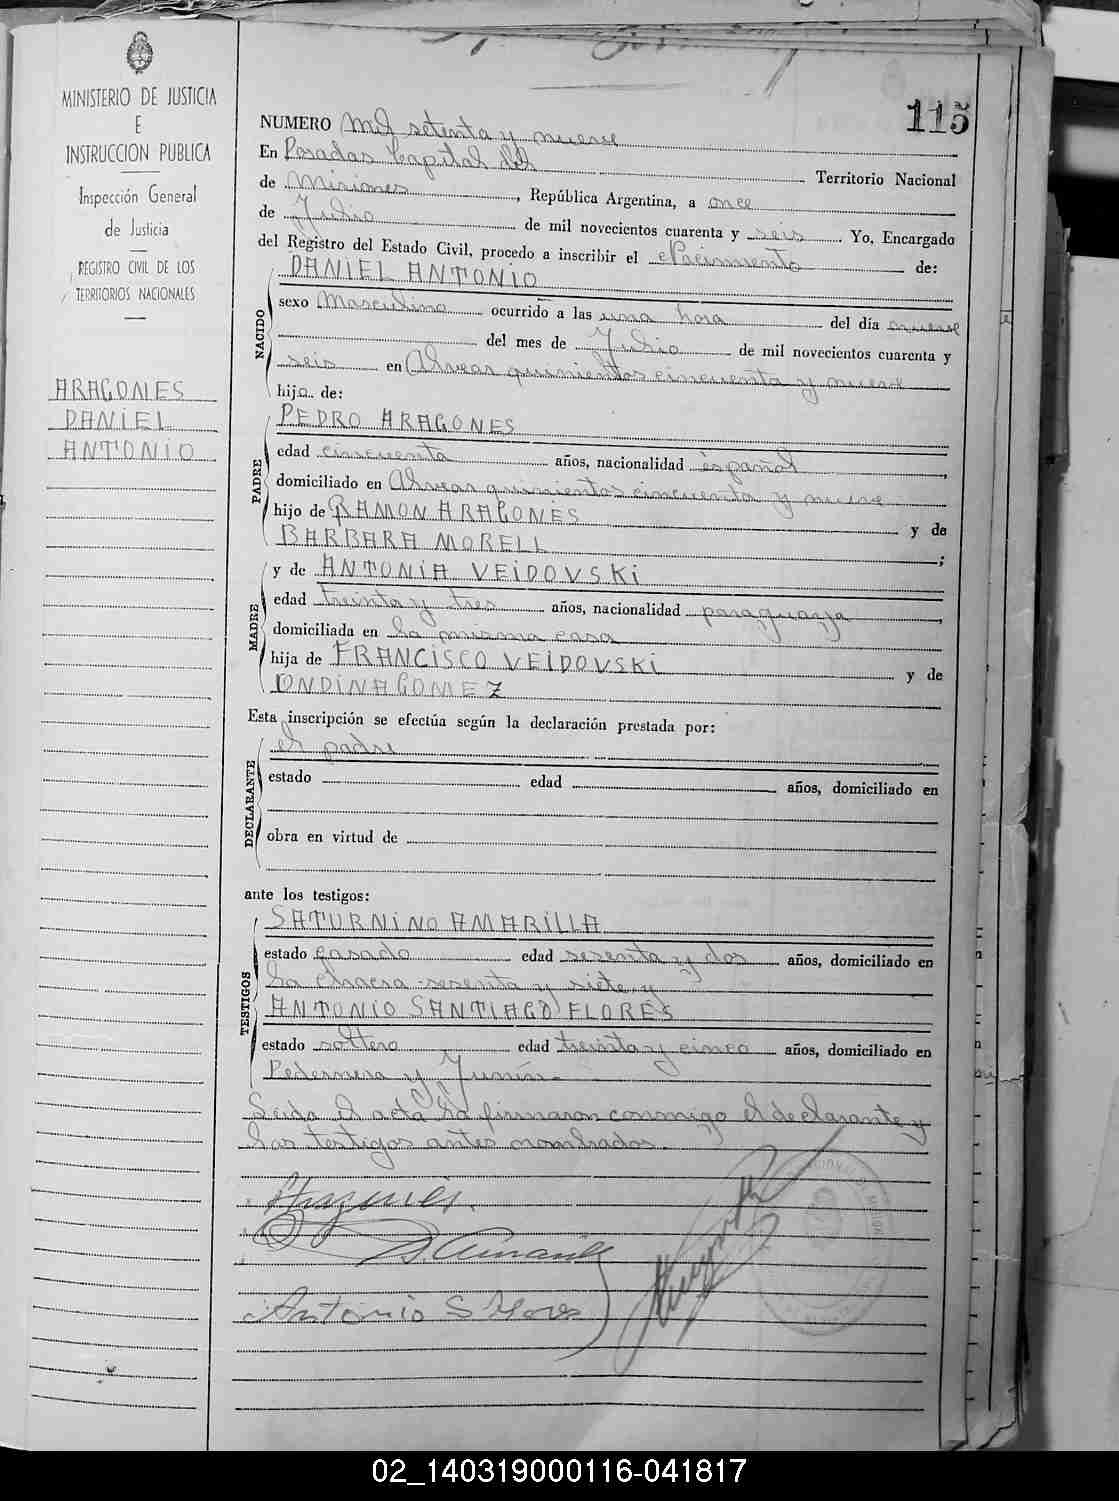 115
MINISTERIO DE JUSTICIA
E
INSTRUCCION PUBLICA
Inspección General
de Justicia
REGISTRO CIVIL DE LOS
TERRITORIOS NACIONALES
ARAGONES
DANIEL
ANTONIO
NUMERO Mil setenta y nueve
En Posadas Capital del Territorio Nacional
de Misiones, República Argentina, a once
de Julio de mil novecientos cuarenta y seis. Yo, Encargado
del Registro del Estado Civil, procedo a inscribir el Nacimiento de:
NACIDO
DANIEL ANTONIO
sexo Masculino ocurrido a las una hora del día nueve
del mes de Julio de mil novecientos cuarenta y
seis en Alvear quinientos cincuenta y nueve
hijo de:
PADRE
PEDRO ARAGONES
edad cincuenta años, nacionalidad español,
domiciliado en Alvear quinientos cincuenta y nueve
hijo de RAMON ARAGONES y de
BARBARA MORELL;
MADRE
y de ANTONIA VEIDOVSKI
edad treinta y tres años, nacionalidad paraguaya,
domiciliada en la misma casa
hija de FRANCISCO VEIDOVSKI y de
ONDINA GOMEZ
Esta inscripción se efectúa según la declaración prestada por:
DECLARANTE
el padre
estado edad años, domiciliado en
obra en virtud de
ante los testigos:
TESTIGOS
SATURNINO AMARILLA
estado casado edad sesenta y dos años, domiciliado en
la chacra sesenta y siete y
ANTONIO SANTIAGO FLORES
estado soltero edad treinta y cinco años, domiciliado en
Pedernera y Junín.
Leida el acta la firmaron conmigo el declarante y
los testigos antes nombrados.
Aragonés.
S. Amarilla
Antonio S Flores
02_140319000116-041817